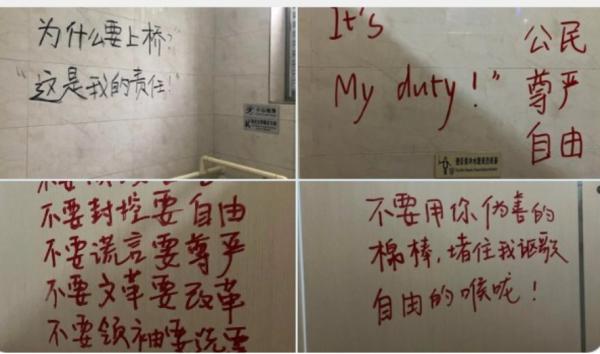 为什么要上桥?
"这是我的责任!"
It's
My duty!"
公民
尊严
自由
不要封控要自由
不要谎言要尊严
不要文革要改革
不要领袖要选票
不要用你伪善的
棉棒,堵住我讴歌
自由的喉咙!